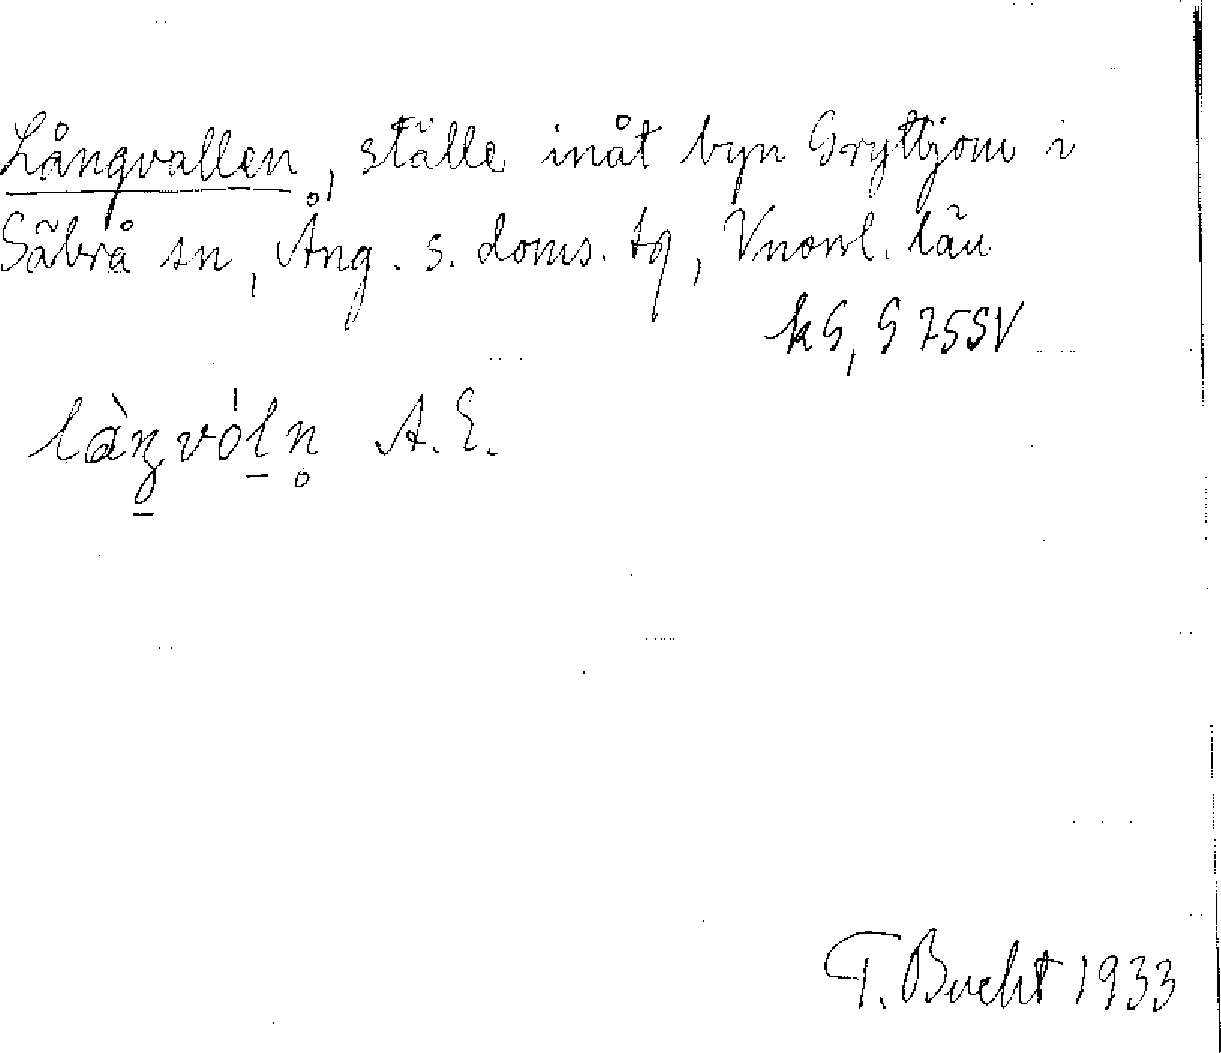 Långvallen, ställe inåt byn Gryttjom i
Säbrå sn, Ång. s. doms. tg, Vnorrl. län
kG, G 75SV
A. E.
T. Bucht 1933